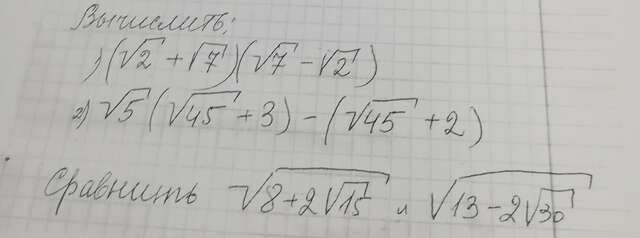 Вычислить:
1) (√2 + √7)(√7 - √2)
2) √5(√45 + 3) - (√45 + 2)
Сравнить √(8+2√15) и √(13-2√30)